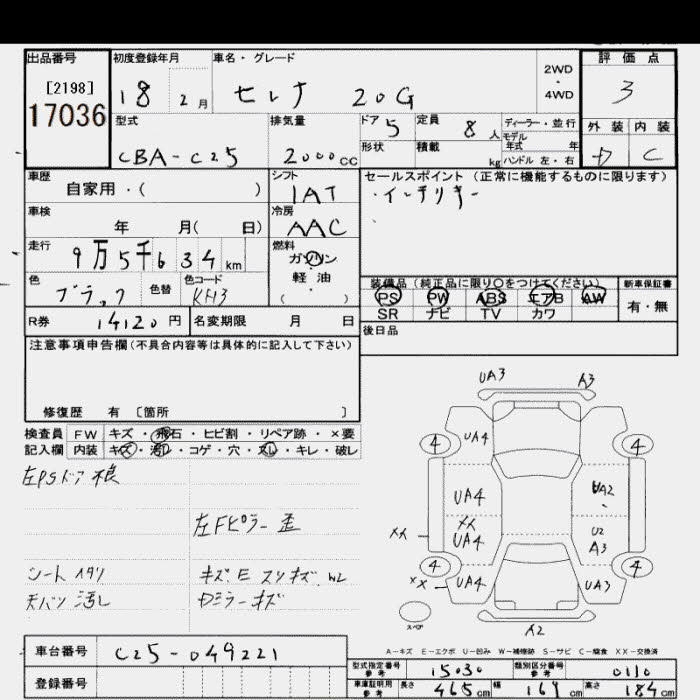 出品番号 初度登録年月 車名・グレード 評価点
[2198] 18 2月 セレナ 20G 2WD・4WD 3
17036
型式 排気量 ドア 5 定員 8人 ディーラー・並行 外装 内装
モデル
CBA-C25 2000cc 形状 積載 kg 年式 年
ハンドル 左・右 C
車歴 シフト セールスポイント (正常に機能するものに限ります)
自家用・( ) IAT ・インチリキー
車検 冷房
年 月( 日) AAC
走行 燃料
9万5千634km ガソリン
色 色替 色コード 軽油 装備品 (純正品に限り○をつけてください) 新車保証書
ブラック KH3 ( ) PS PW ABS エアB AW 有・無
SR ナビ TV カワ
R券 14120円 名変期限 月 日 後日品
注意事項申告欄(不具合内容等は具体的に記入して下さい)
修復歴 有 [箇所 ]
検査員 FW キズ・飛石・ヒビ割・リペア跡・×要
記入欄 内装 キズ・汚レ・コゲ・穴・スレ・キレ・破レ
左PSドア 根
左Fピラー 歪
シート スタリ キズ、E スリキズ、W2
天バリ 汚レ Dミラーキズ
UA3 A3
4 UA4 4
UA4 UA2
XX
XX UA4 U2
A3
4 4
XX UA4 UA3
スペア
A2
A-キズ E-エクボ U-凹み W-補修跡 S-サビ C-腐食 XX-交換済
車台番号 C25-049221
型式指定番号 参考 15030 類別区分番号 参考 0110
登録番号 車庫証明用 参考 長さ 465cm 幅 169cm 高さ 184cm